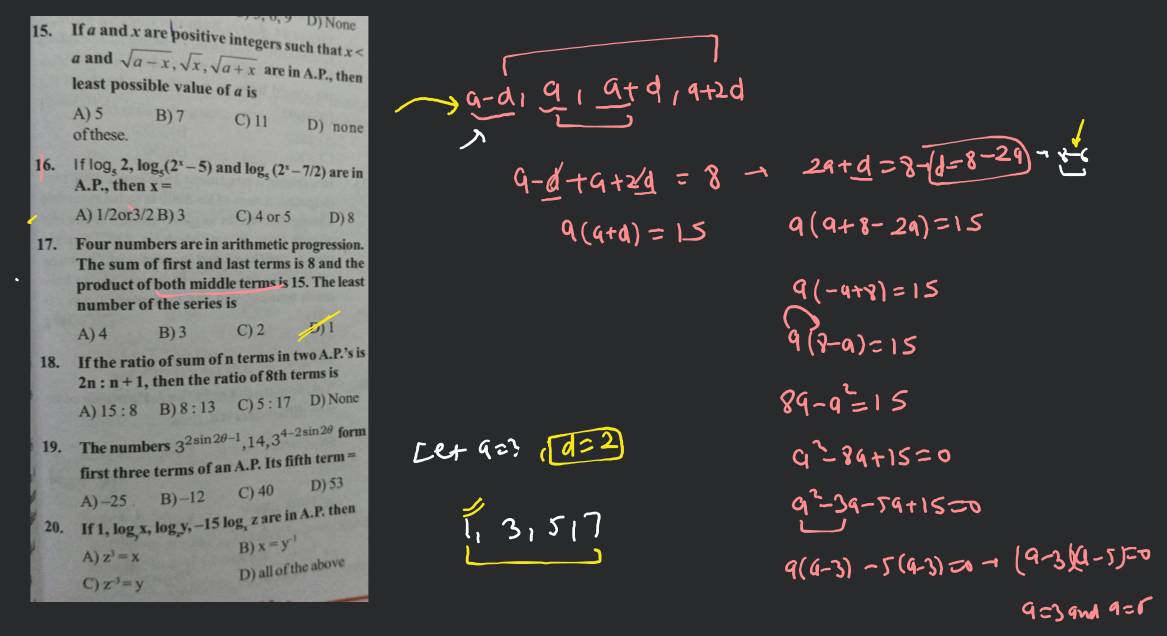 D) None
15. If a and x are positive integers such that x <
a and √a−x, √x, √a+x are in A.P., then
least possible value of a is
A) 5 B) 7 C) 11 D) none
of these.
16. If log₅ 2, log₅(2ˣ − 5) and log₅ (2ˣ − 7/2) are in
A.P., then x =
A) 1/2or3/2 B) 3 C) 4 or 5 D) 8
17. Four numbers are in arithmetic progression.
The sum of first and last terms is 8 and the
product of both middle terms is 15. The least
number of the series is
A) 4 B) 3 C) 2 D) 1
18. If the ratio of sum of n terms in two A.P.'s is
2n : n + 1, then the ratio of 8th terms is
A) 15 : 8 B) 8 : 13 C) 5 : 17 D) None
19. The numbers 3^(2sin2θ−1), 14, 3^(4−2sin2θ) form
first three terms of an A.P. Its fifth term =
A) −25 B) −12 C) 40 D) 53
20. If 1, log x, log y, −15 log z are in A.P. then
A) z³ = x B) x = y⁻¹
C) z⁻³ = y D) all of the above
a-d, a, a+d, a+2d
a-d+a+2d = 8 → 2a+d = 8 → d=8-2a →
a(a+d) = 15 a(a+8-2a)=15
a(-a+8)=15
a(8-a)=15
8a-a²=15
a²-8a+15=0
a²-3a-5a+15=0
a(a-3) -5(a-3)=0 → (a-3)(a-5)=0
a=3 and a=5
Let a=3, d=2
1, 3, 5, 7